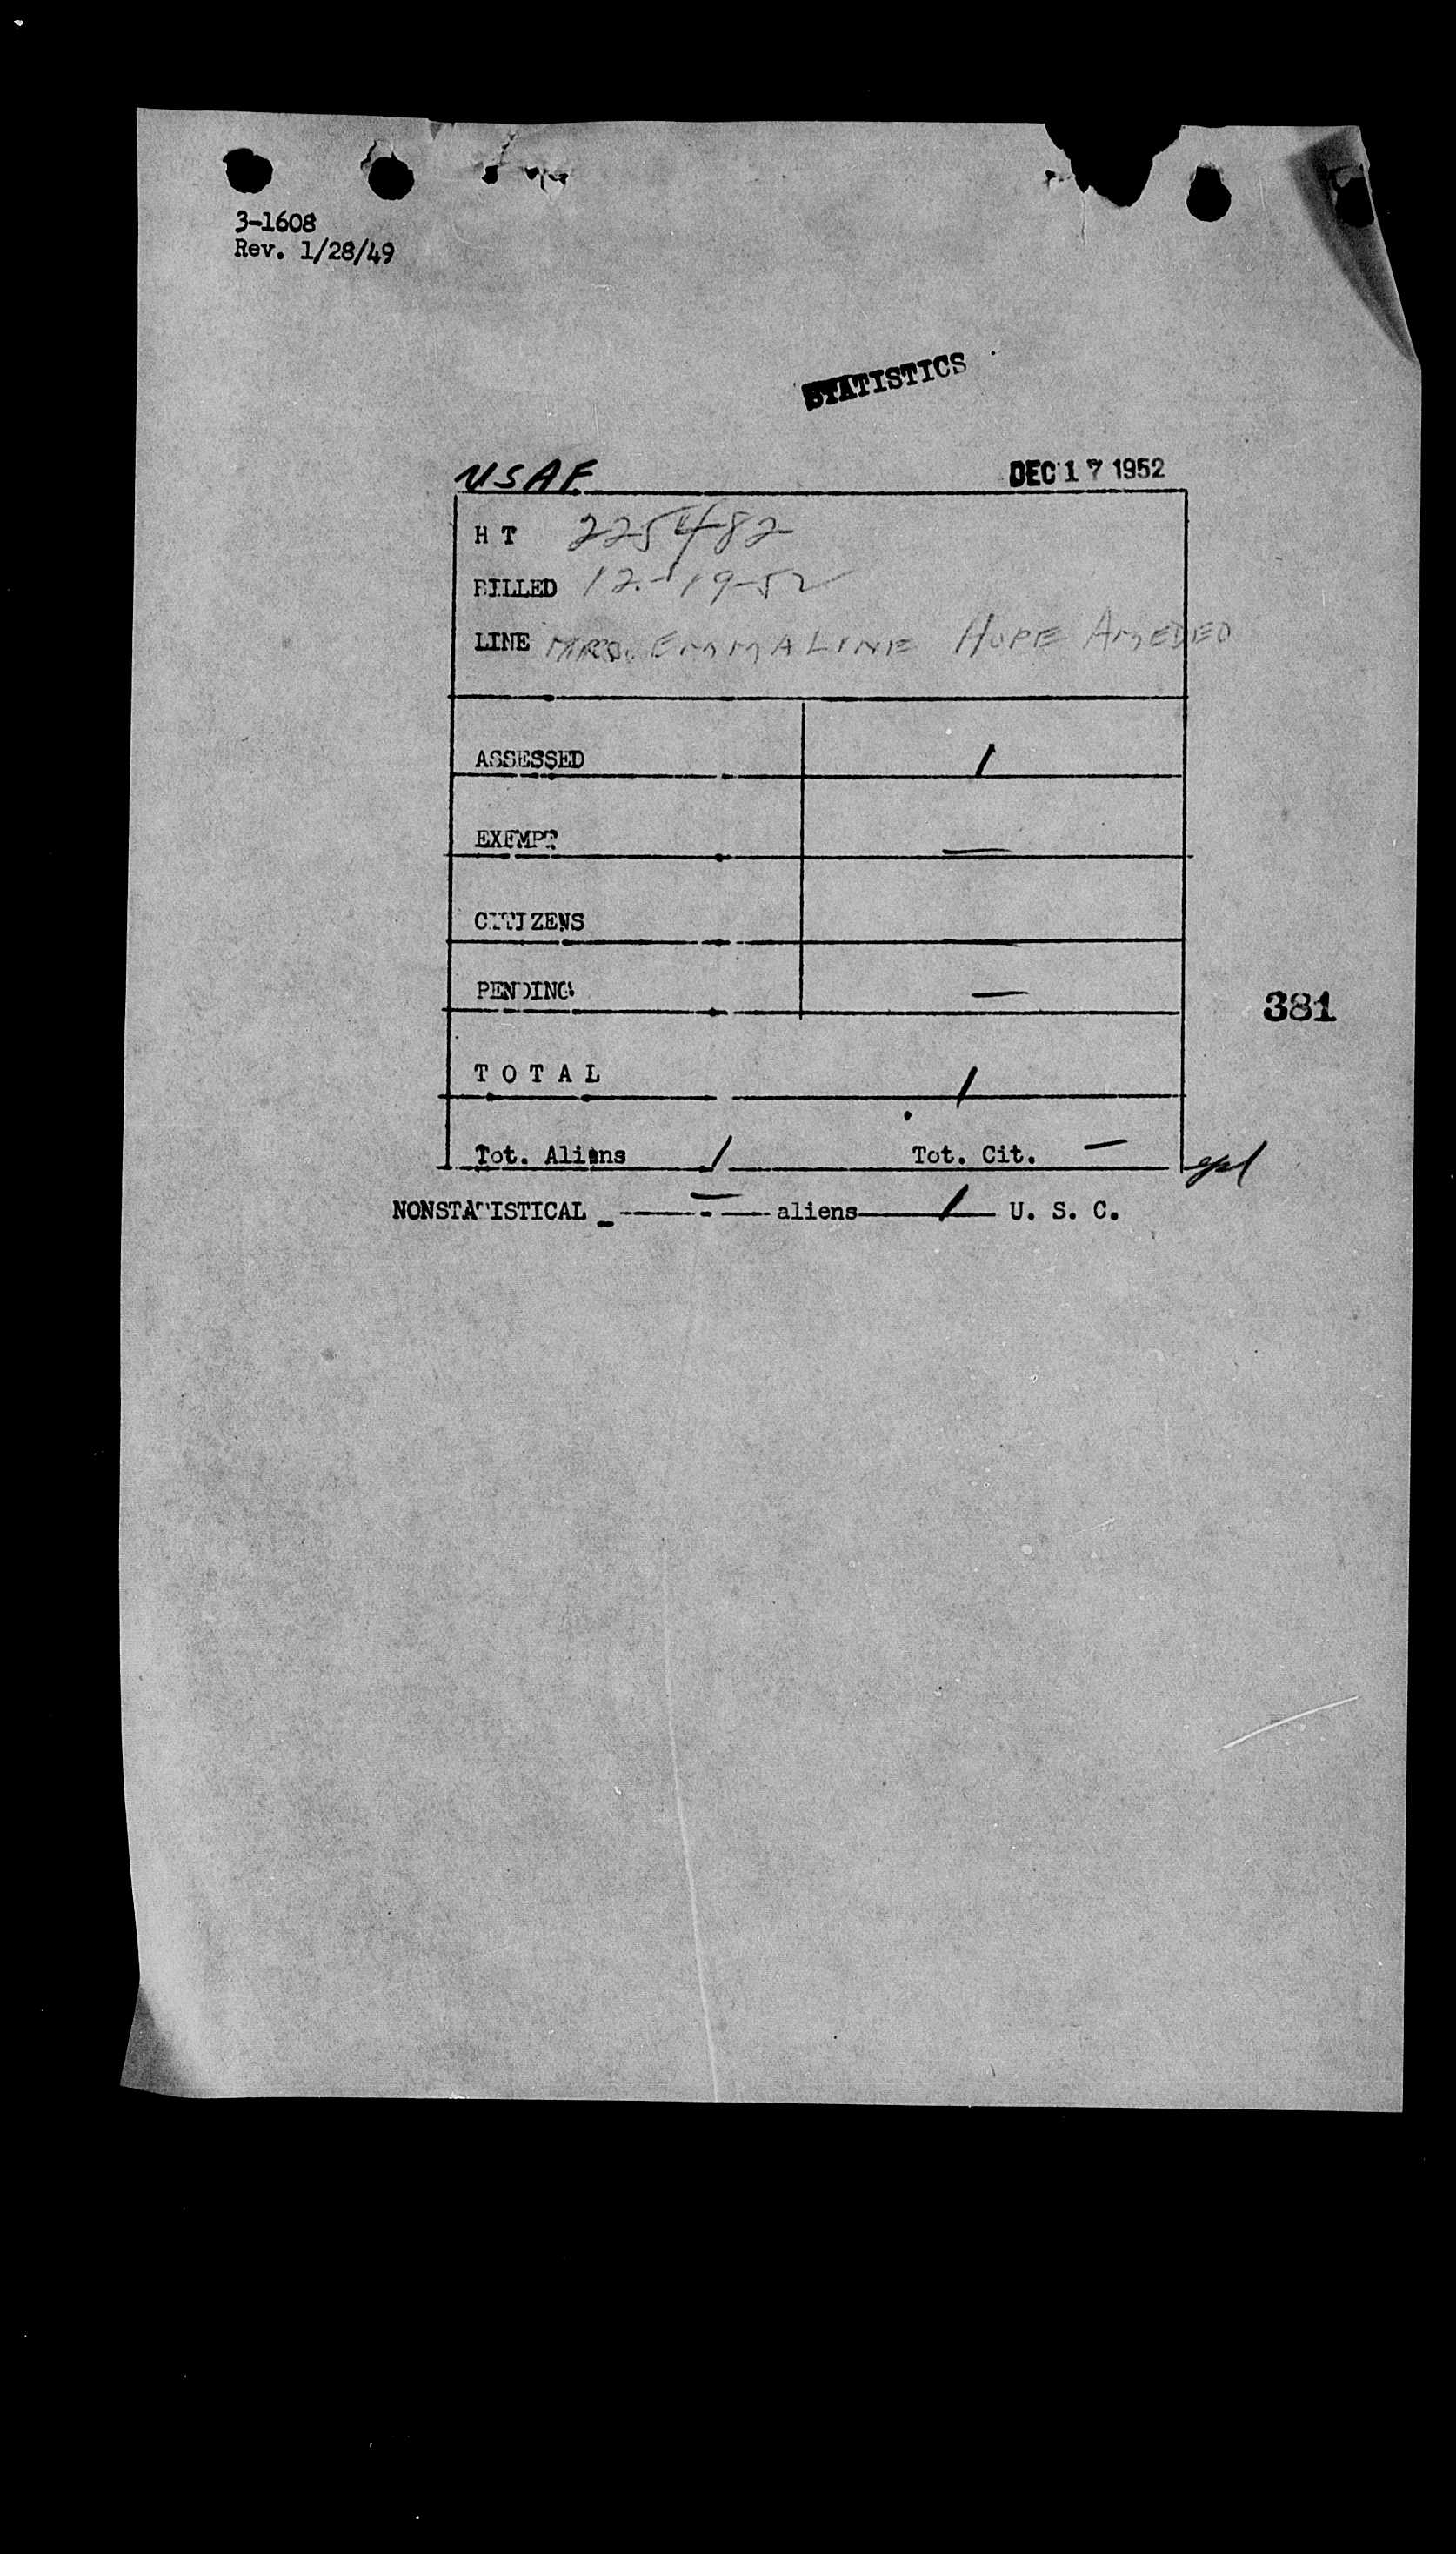 3-1608
Rev. 1/28/49
STATISTICS
USAF DEC 17 1952
H T 225482
BILLED 12-19-52
LINE MRS. EMMALINE HOPE AMEDEO
ASSESSED /
EXEMPT —
CITIZENS —
PENDING —
381
T O T A L /
Tot. Aliens / Tot. Cit. —
NONSTATISTICAL — aliens / U. S. C.